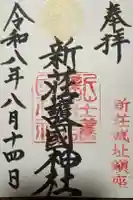 奉拝
新荘城址鎮座
新荘護國神社
令和八年八月十四日